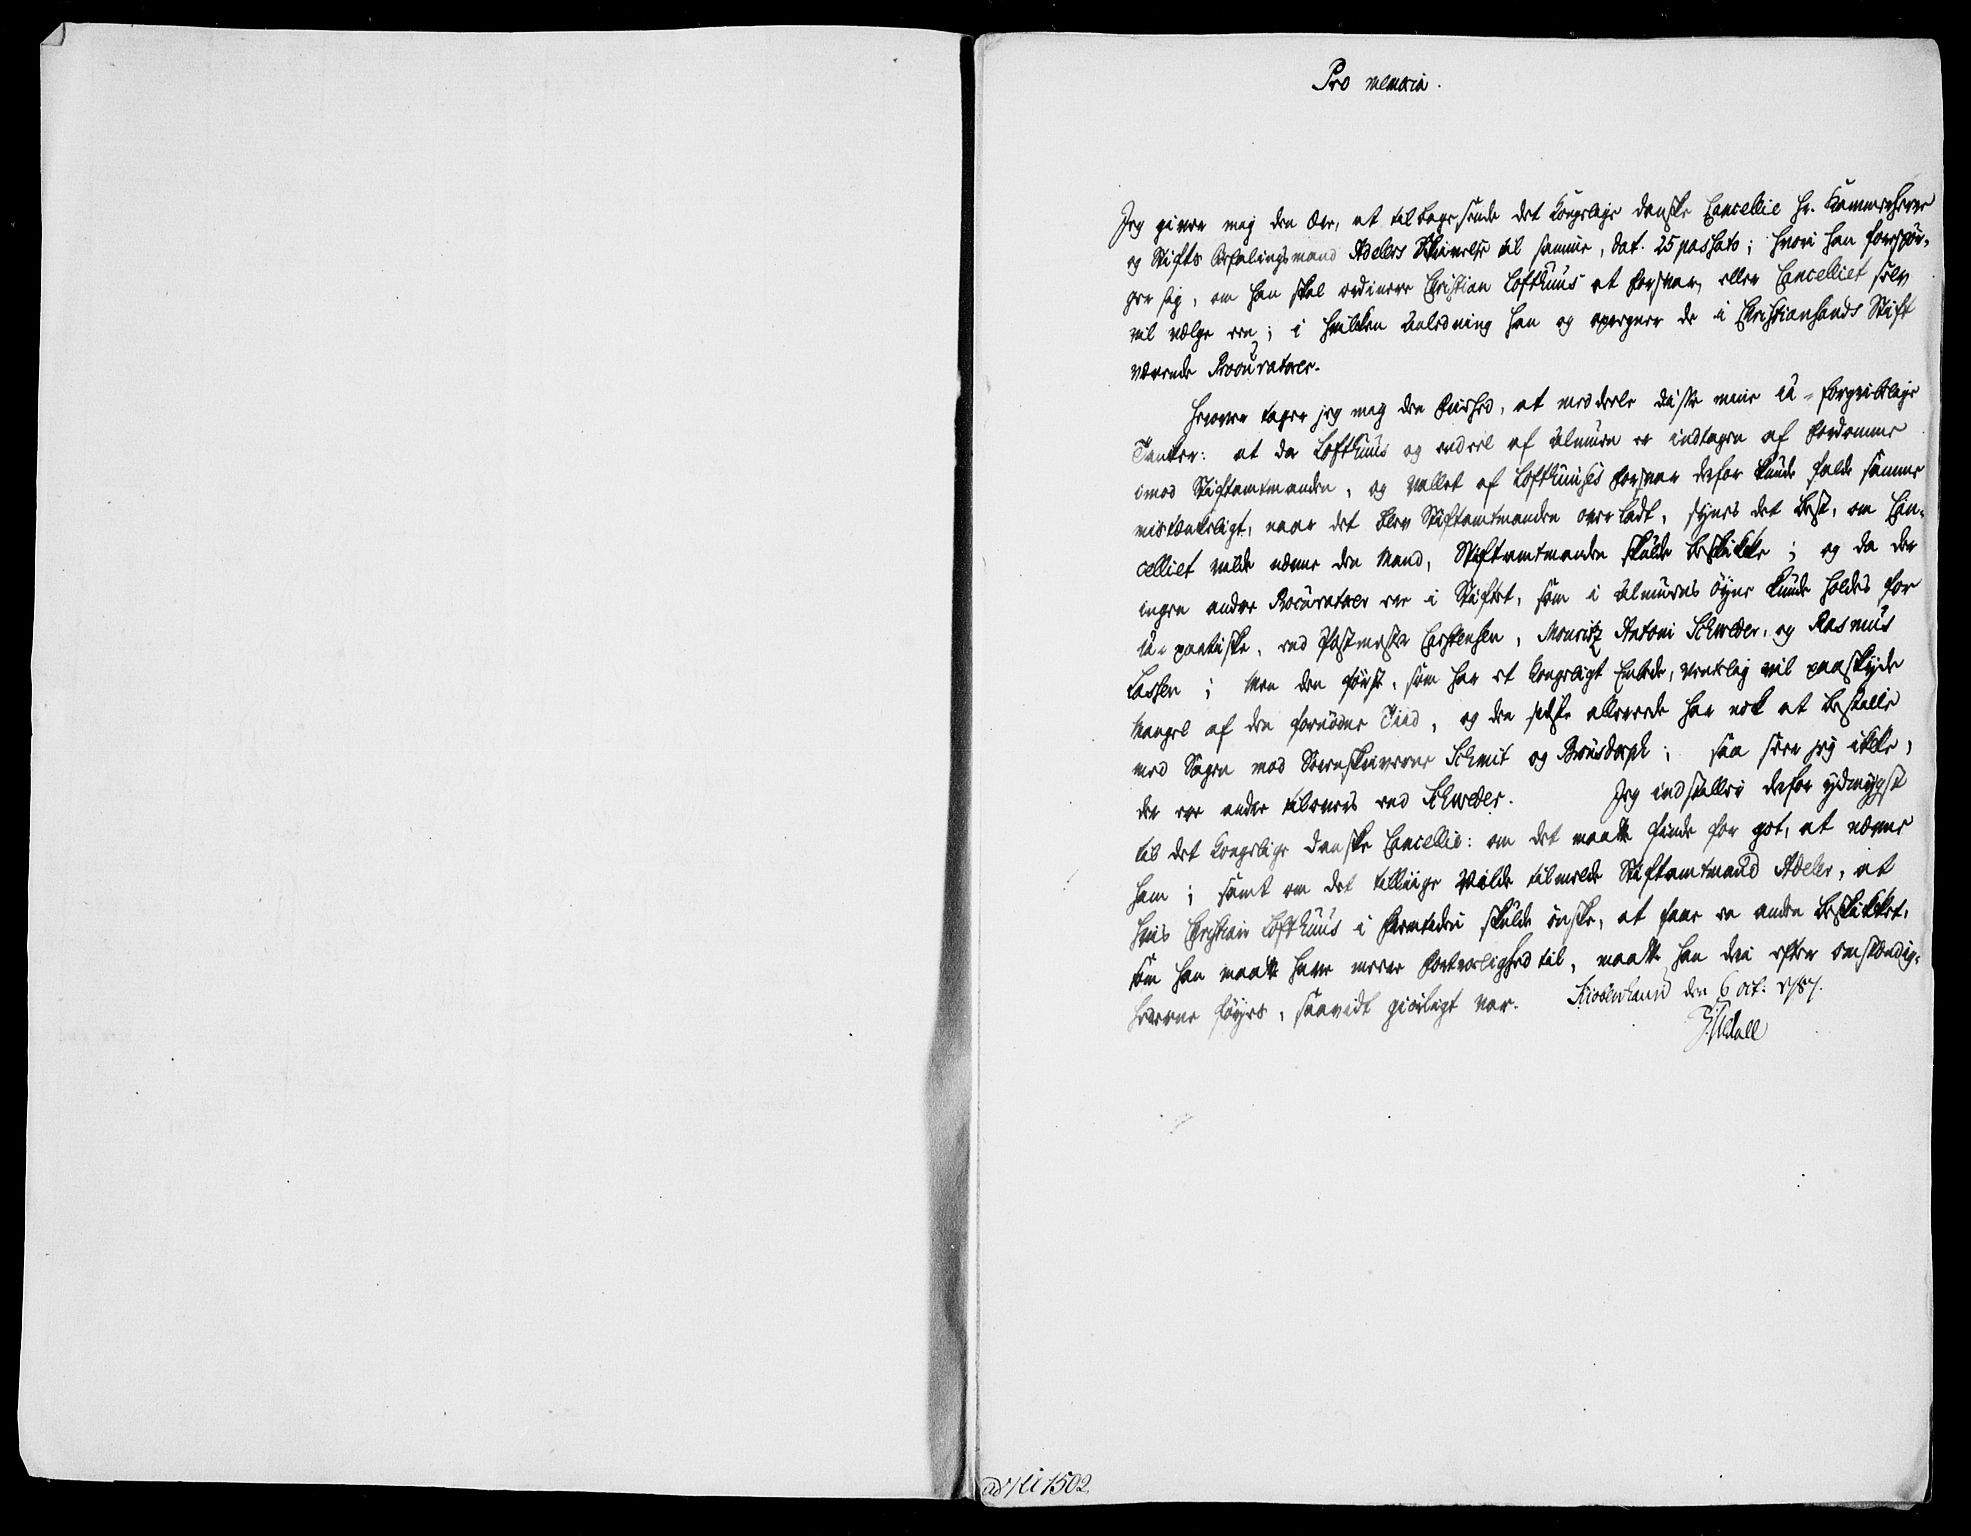 Pro memoria.
Jeg giver mig den Ære, at tilbage sende det Kongelige danske Cancellie Hr. Kammerherre
og Stifts Befalingsmand Adelers Skrivelse til samme, dat. 25 passato; hvori han forespör-
ger sig, om han skal ordinere Christian Lofthuus et Forsvar, eller Cancelliet selv
vil vælge een; i hvilken Anledning han og opregner de i Christiansands Stift
værende Procuratorer.
Herover tager jeg mig den Friihed, at meddeele disse mine uu-forgribelige
Tanker: at da Lofthuus og endeel af Almuen er indtagen af Fordomme
imod Stiftamtmanden, og Vallet af Lofthuuses Forsvar derfor kunde falde samme
mistænkeligt, naar det blev Stiftamtmanden overladt, synes det best, om Can-
celliet vilde nævne den Mand, Stiftamtmanden skulde beskikke; og da der
ingen andre Procuratorer ere i Stiftet, som i Almuens Öyne kunde holdes for
uu-partiske, end Postmester Carstensen, Mouritz Antoni Schweder, og Rasmus
Lassen; Men den första, som har et kongeligt Embede, venteligt vil paaskyde
Mangel af den fornödne Tiid, og den sidste allerede har nok at bestille
med Sagen mod Sorenskriverne Schmit og Brönsdorph; saa seer jeg ikke,
der ere andre tilovers end Schweder. Jeg indstiller derfor ydmygst
til det Kongelige danske Cancellie: om det maatte finde for got, at nævne
ham; samt om det tilliige vilde tilmelde Stiftamtmand Adeler, at
hvis Christian Lofthuus i Fremtiden skulde önske, at faae en anden beskikket,
som han maatte have meere Fortroelighed til, maatte han deri efter Omstændig-
hederne föyes, saavidt giörligt var. Kiöbenhavn den 6 oct: 1787.
Uldall
ad No 1502